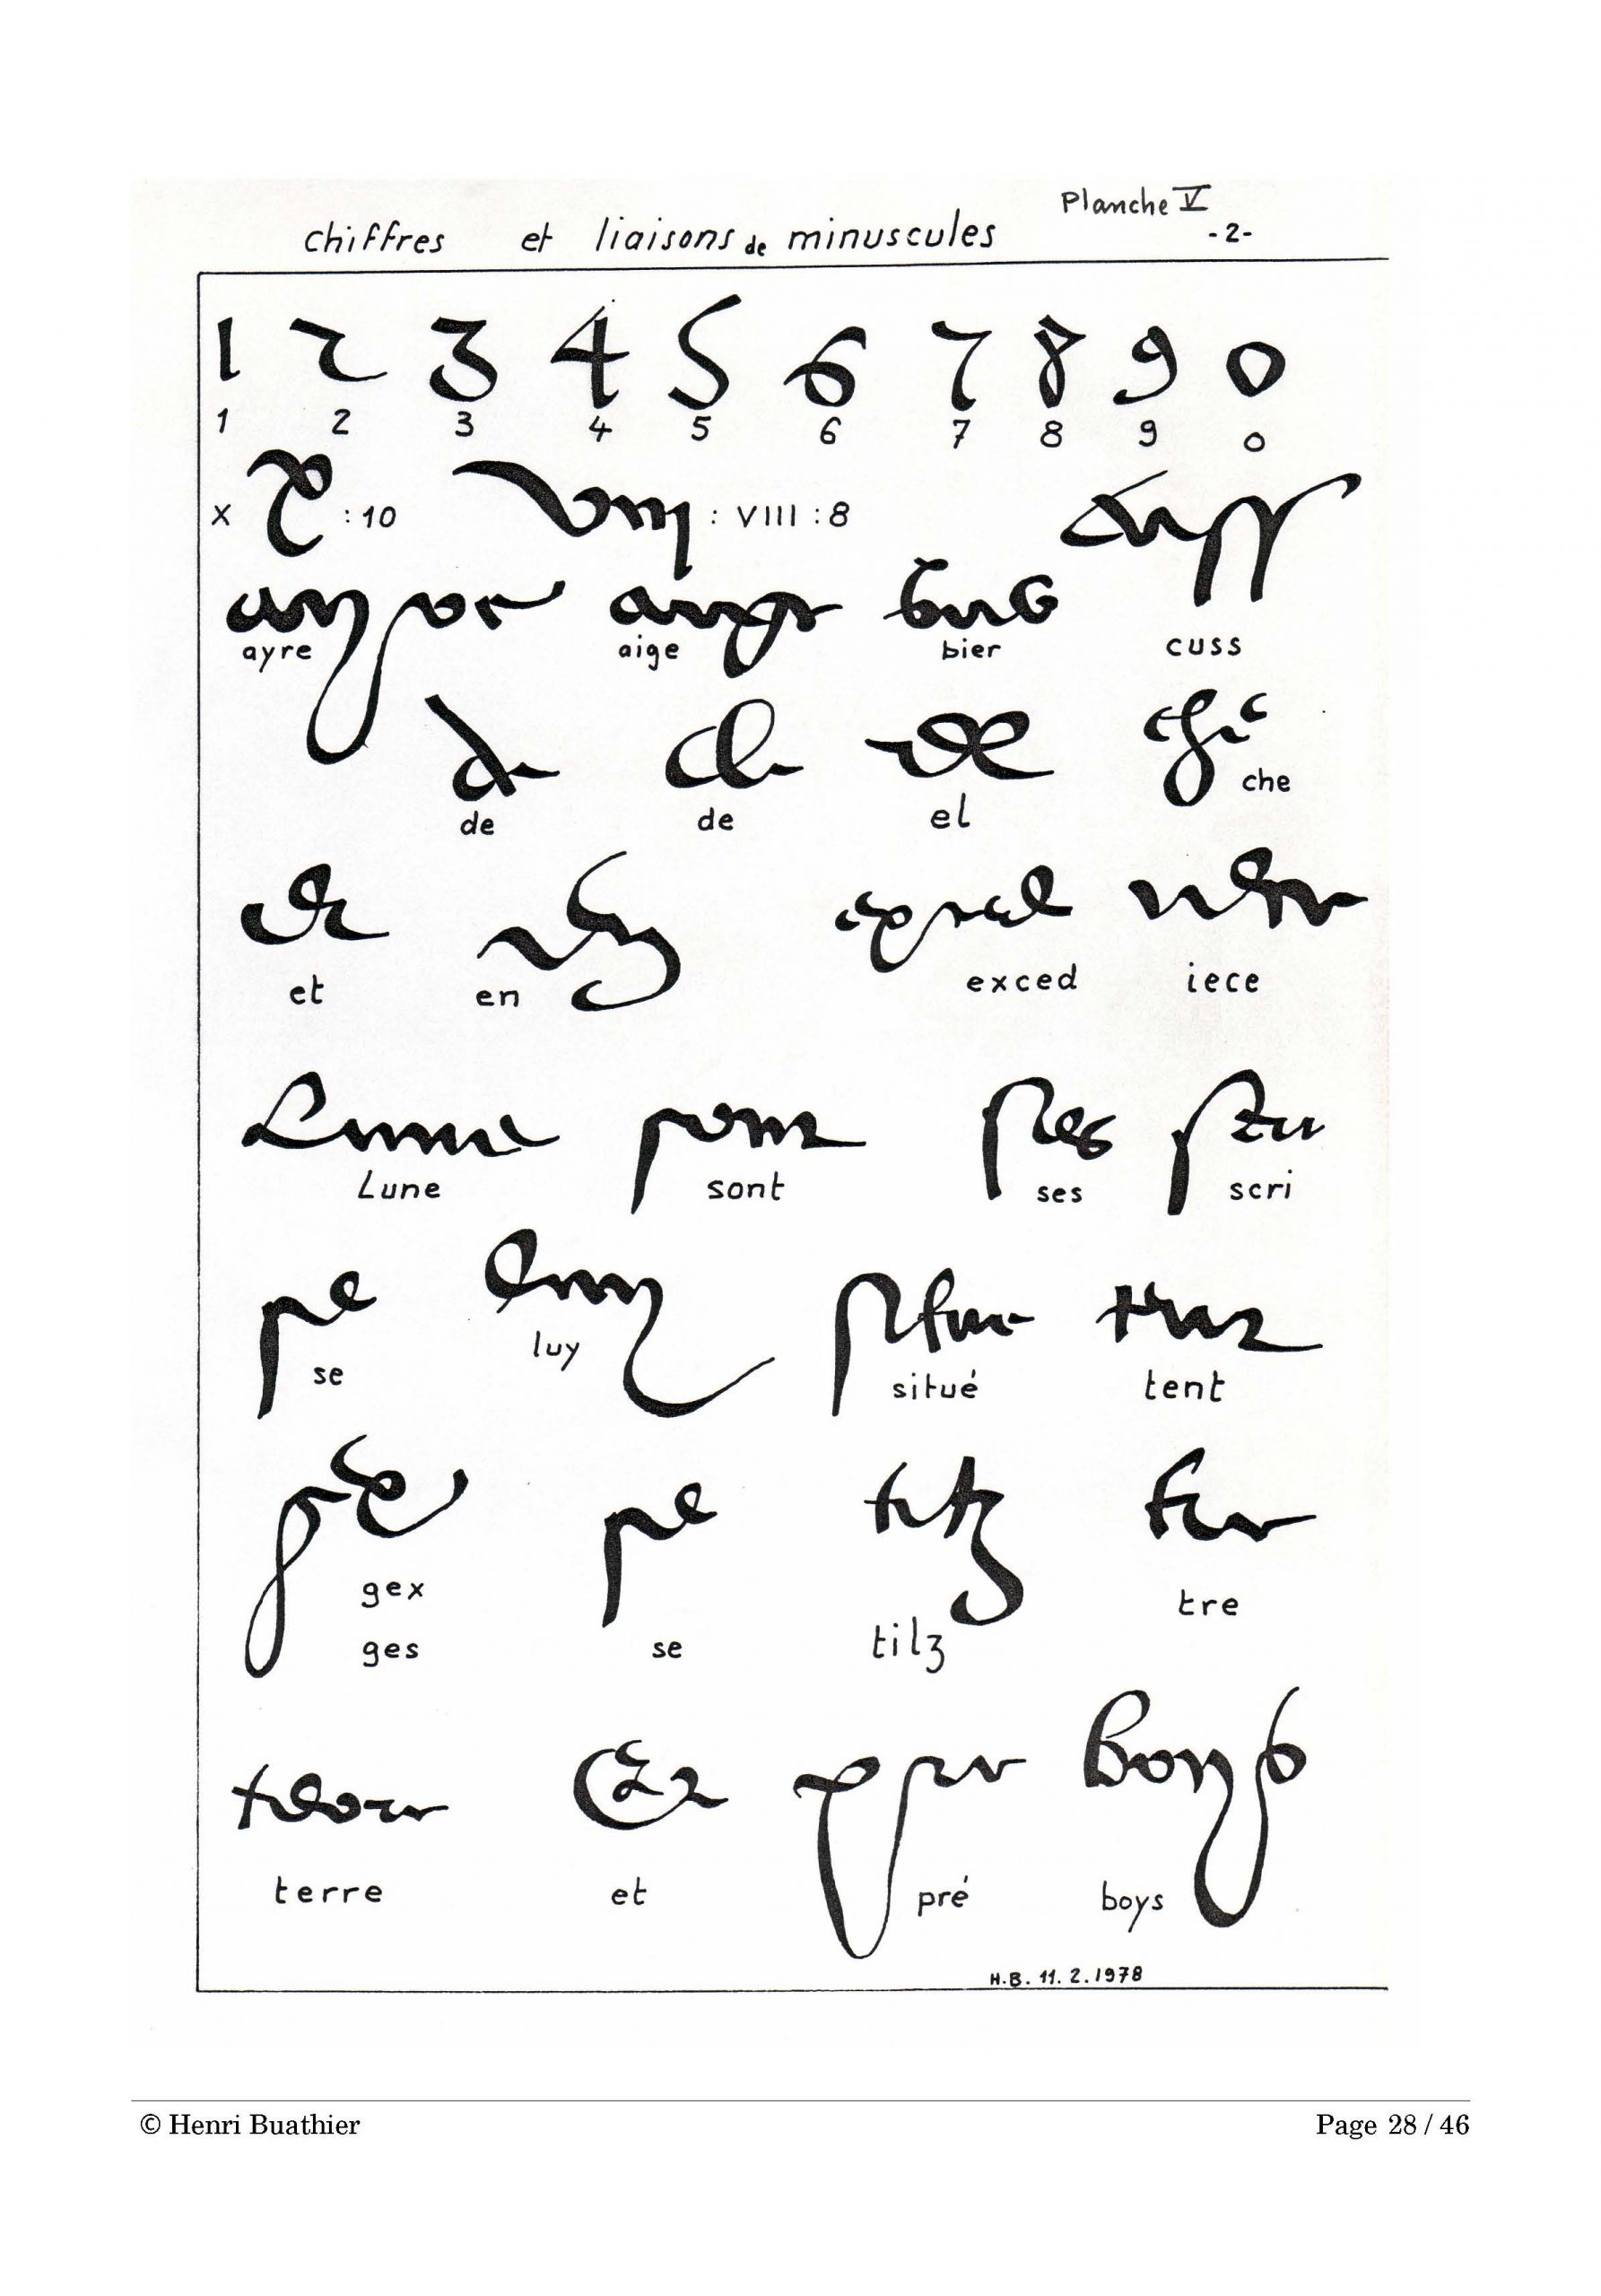 Planche V
chiffres et liaisons de minuscules -2-
1 2 3 4 5 6 7 8 9 0
1 2 3 4 5 6 7 8 9 0
x : 10 : VIII : 8
ayre aige bier cuss
de de el che
et en exced iece
Lune sont ses scri
se luy situé tent
gex se tilz tre
ges
terre et pré boys
H.B. 11. 2. 1978
© Henri Buathier Page 28 / 46